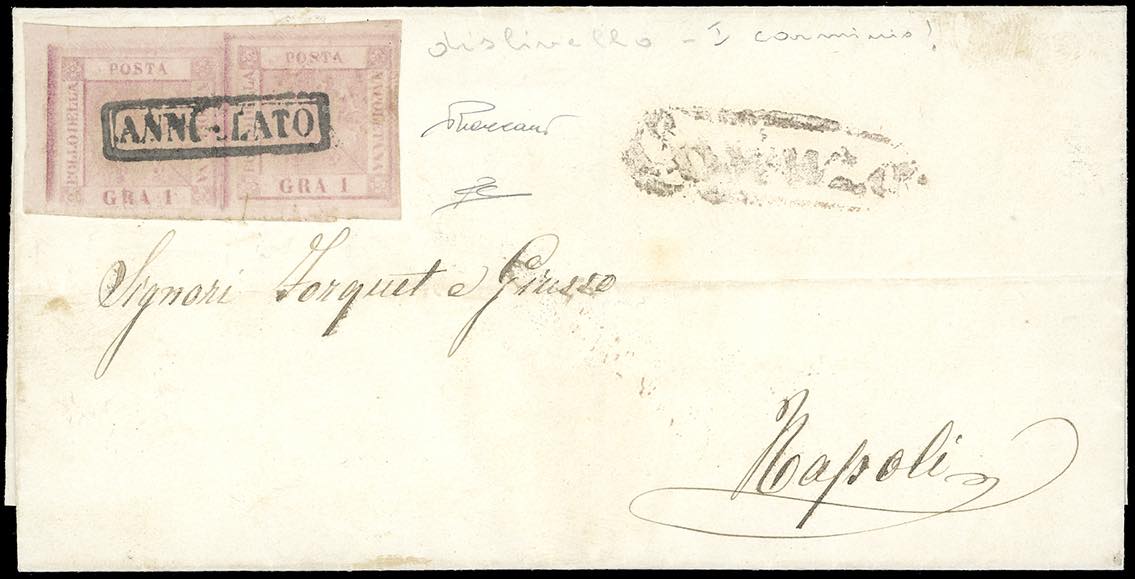 dislivello - I carminio!
POSTA POSTA
BOLLO DELLA NAPOLETANA BOLLO DELLA NAPOLETANA
ANNULLATO
GRA 1 GRA 1
Signori Forquet e Giusso
Napoli